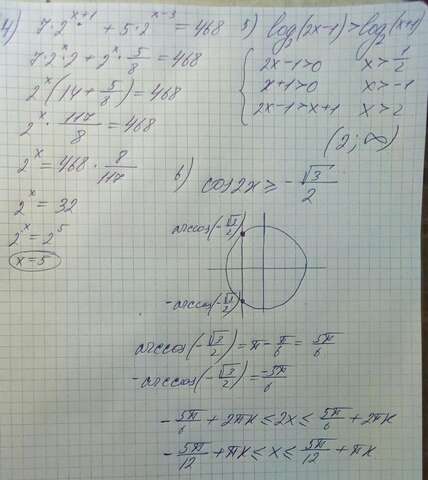 4) 7·2^{x+1} + 5·2^{x-3} = 468
7·2^x·2 + 2^x·5/8 = 468
2^x(14 + 5/8) = 468
2^x · 117/8 = 468
2^x = 468 · 8/117
2^x = 32
2^x = 2^5
x = 5
5) log_2(2x-1) > log_2(x+1)
2x-1>0 x > 1/2
x+1>0 x > -1
2x-1>x+1 x > 2
(2; ∞)
6) cos 2x ≥ -√3/2
arccos(-√3/2)
-arccos(-√3/2)
arccos(-√3/2) = π - π/6 = 5π/6
-arccos(-√3/2) = -5π/6
-5π/6 + 2πк ≤ 2x ≤ 5π/6 + 2πк
-5π/12 + πк ≤ x ≤ 5π/12 + πк